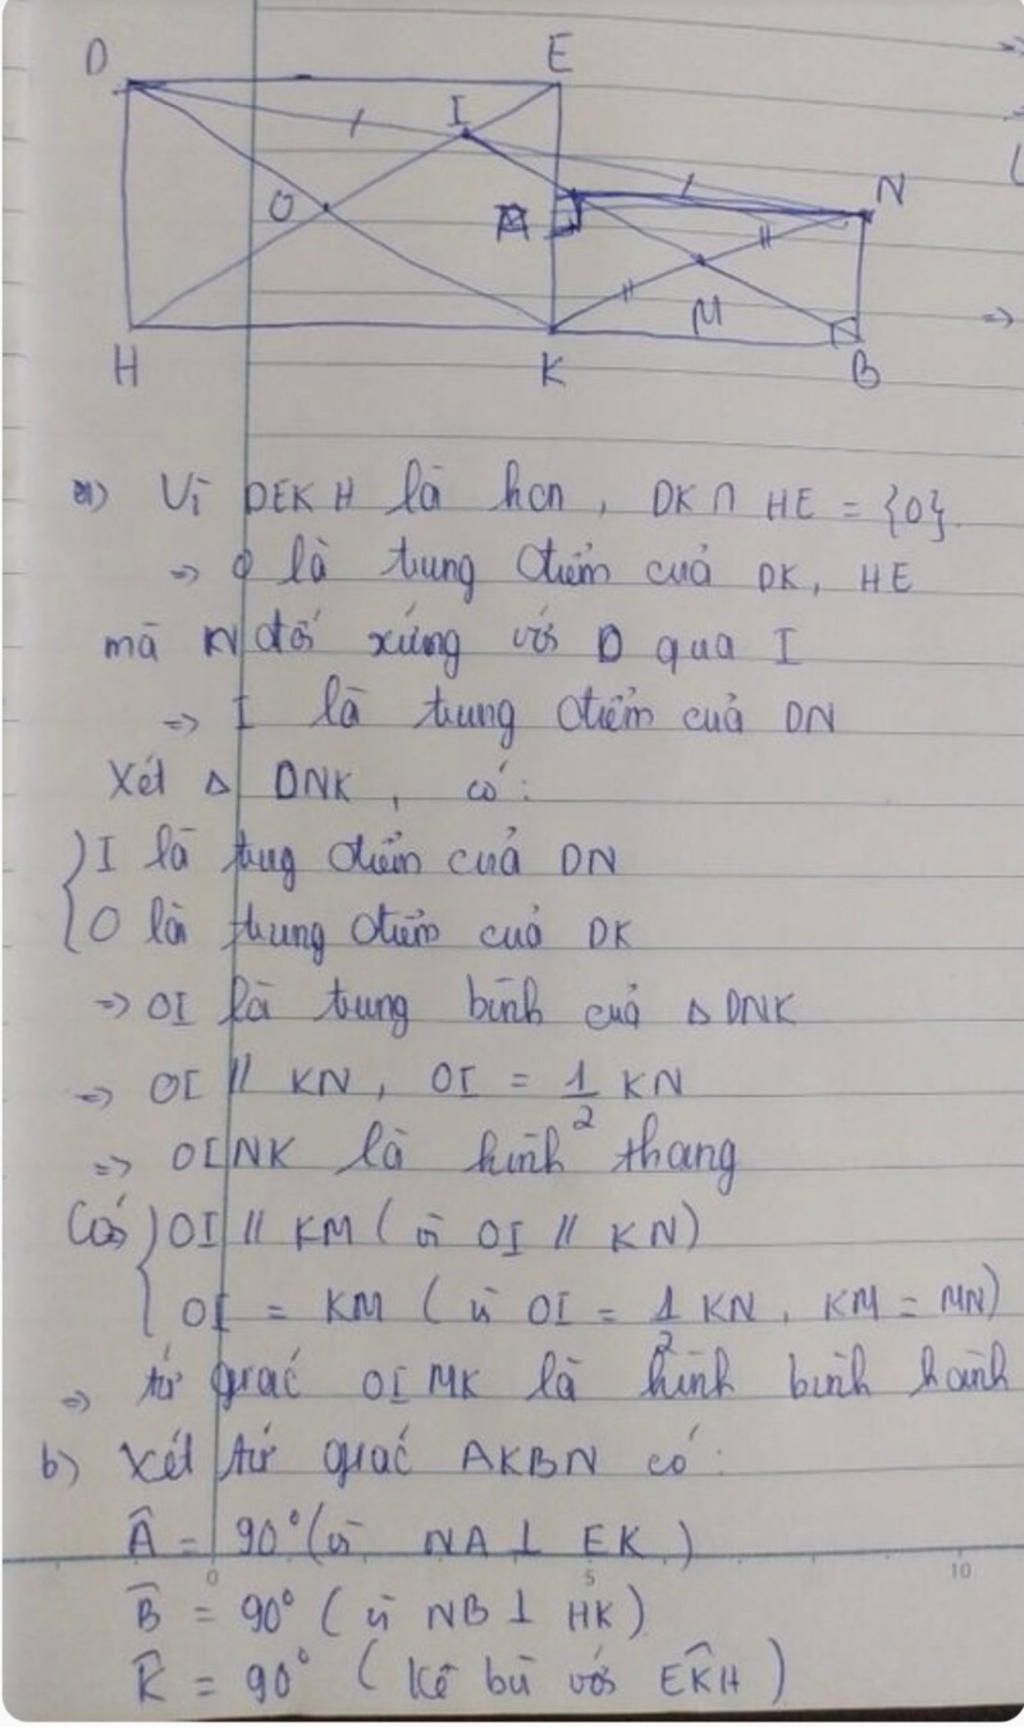 D
E
I
N
O
A
M
H
K
B
=>
a) Vì DEKH là hcn, DK ∩ HE = {O}.
=> O là trung điểm cuả DK, HE
mà N đối xứng với D qua I
=> I là trung điểm cuả DN
Xét Δ DNK, có:
I là trug điểm cuả DN
O là trung điểm cuả DK
=> OI là trung bình cuả Δ DNK
=> OI // KN, OI = 1/2 KN
=> OINK là hình thang
Có OI // KM (vì OI // KN)
OI = KM (vì OI = 1/2 KN, KM = MN)
=> tứ giác OIMK là hình bình hành
b) Xét tứ giác AKBN có:
Â = 90° (vì NA ⊥ EK)
B̂ = 90° (vì NB ⊥ HK)
K̂ = 90° (kề bù với EK̂H)
0 5 10